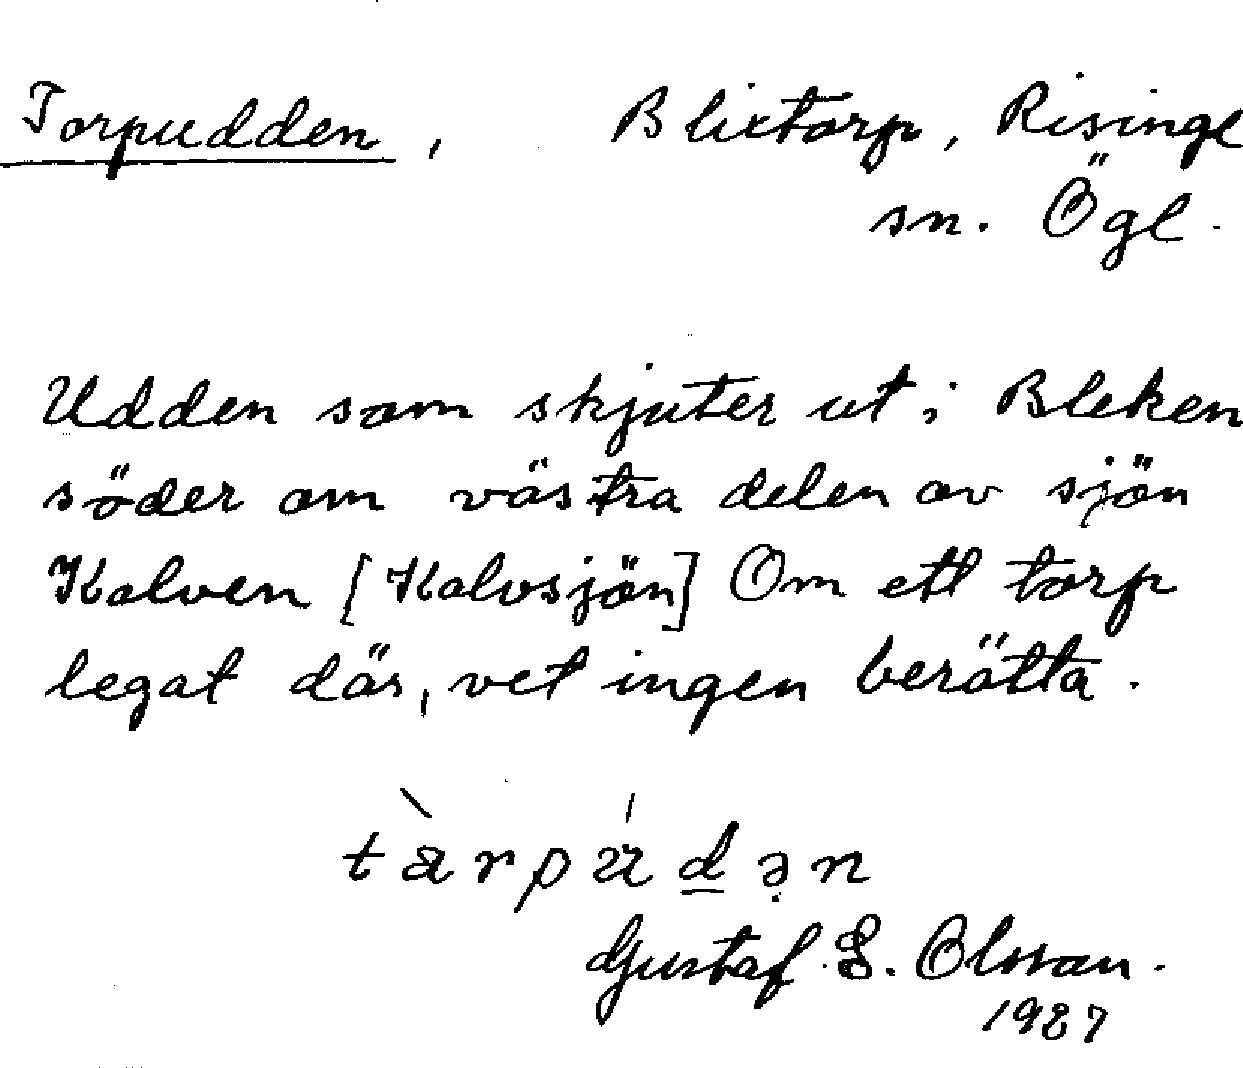 Torpudden, Blixtorp, Risinge
sn. Ögl.
Udden som skjuter ut i Bleken
söder om västra delen av sjön
Kalven [Kalvsjön] Om ett torp
legat där, vet ingen berätta.
Gustaf E. Olsson.
1927